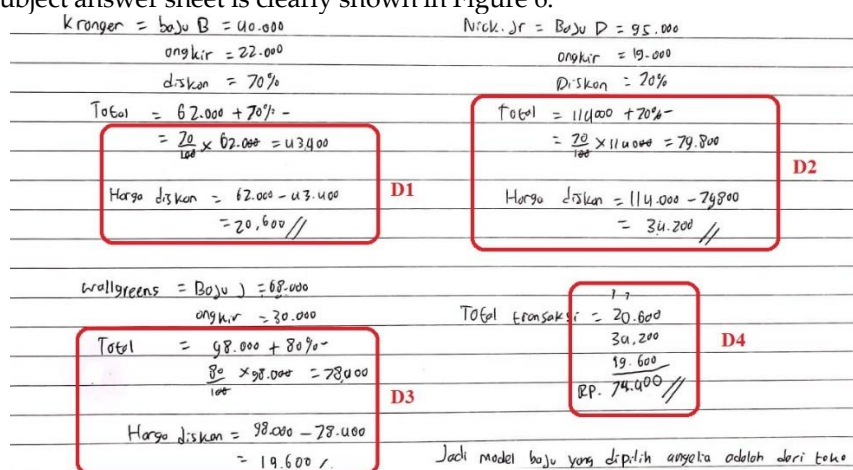 ubject answer sheet is clearly shown in Figure 6.
Kronger = baju B = 40.000
ongkir = 22.000
diskon = 70%
Total = 62.000 + 70% -
= 70/100 x 62.000 = 43.400
Harga diskon = 62.000 - 43.400
= 20,600 //
D1
Nick.Jr = Baju D = 95.000
ongkir = 19.000
Diskon = 70%
Total = 114000 + 70% -
= 70/100 x 114000 = 79.800
Harga diskon = 114.000 - 79800
= 34.200 //
D2
Wallgreens = Baju J = 68.000
ongkir = 30.000
Total = 98.000 + 80% -
80/100 x 98.000 = 78,400
Harga diskon = 98.000 - 78.400
= 19.600 /
D3
Total transaksi = 20.600
34,200
19.600
RP. 74.400 //
D4
Jadi model baju yang dipilih angelia adalah dari toko